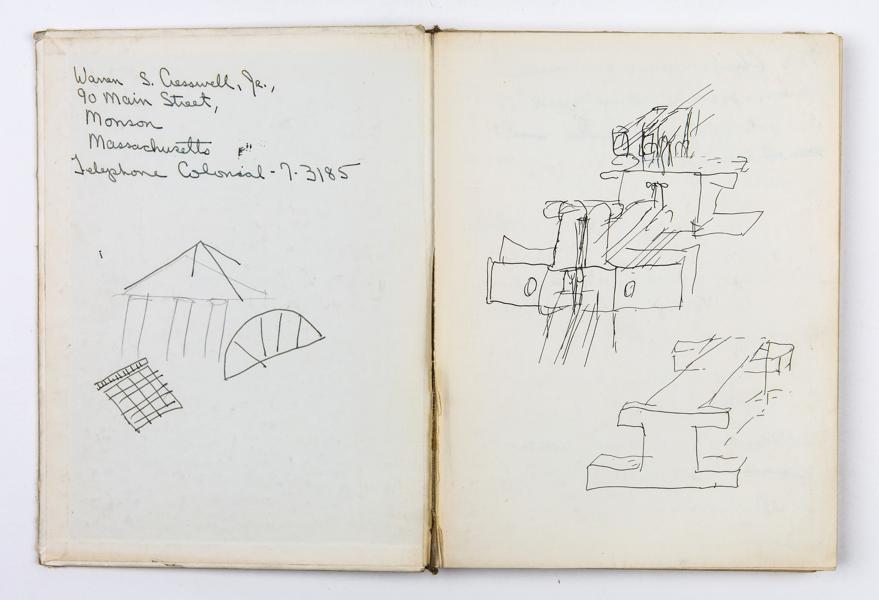 Warren S. Cresswell, Jr.,
90 Main Street,
Monson
Massachusetts
Telephone Colonial-7-3185